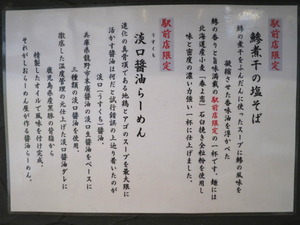 駅前店限定
鯵煮干の塩そば
鯵の煮干をふんだんに使ったスープに鯵の風味を
凝縮させた香味油を浮かべた
鯵の香りと旨味満載の駅前店限定の一杯です。麺には
北海道産小麦「春よ恋」石臼挽き全粒粉を使用し
味と密度の濃い力強い一杯に仕上げました。
駅前店限定
淡口醤油らーめん
うすくち
進化の真骨頂である地鶏とアゴのスープを最大限に
活かす醤油は何だと試行錯誤の上辿り着いたのが
淡口(うすくち)醤油。
兵庫県龍野市末廣醤油の淡口生醤油をベースに
三種類の淡口醤油を使用。
徹底した温度管理の元仕上げた淡口醤油ダレに
鹿児島産黒豚の背脂から
精製したオイルで風味を付け完成。
それがしおらーめん屋が作る醤油らーめん。